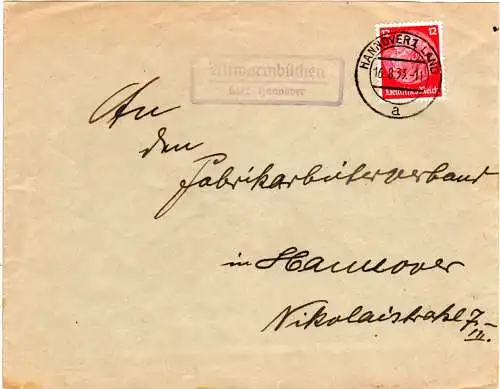 Altwarmbüchen
Land Hannover
HANNOVER 1 LAND
16.8.33.-11
a
12 12
Deutsches Reich
An
den
Fabrikarbeiterverband
in Hannover
Nikolaistrahl 7
III.